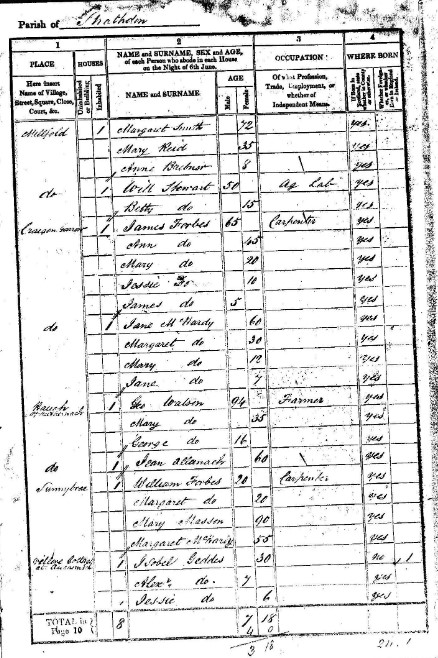 Parish of Strathdon
1 2 3 4
PLACE HOUSES NAME and SURNAME, SEX and AGE, of each Person who abode in each House on the Night of 6th June. OCCUPATION WHERE BORN
Here insert Name of Village, Street, Square, Close, Court, &c. Uninhabited or Building Inhabited NAME and SURNAME. AGE Male Female Of what Profession, Trade, Employment, or whether of Independent Means.
Millfold 1 Margaret Smith 72 yes
Mary Reid 35 yes
Anne Brebner 8 yes
do 1 Will Stewart 50 Ag Lab yes
Betty do 15 yes
1 James Forbes 65 Carpenter yes
Ann do 45 yes
Mary do 20 yes
Jessie Do 10 yes
James do 5 yes
do 1 Jane McHardy 60 yes
Margaret do 30 yes
Mary do 12 yes
Jane do 7 yes
Haugh 1 Geo Watson 94 Farmer yes
Mary do 35 yes
George do 16 yes
do 1 Jean 60 yes
Sunnybrae 1 William Forbes 20 Carpenter yes
Margaret do 20 yes
Mary Masson 90 yes
Margaret McHardy 55 yes
1 Isobel Geddes 30 no 1
Alexr do 7 yes
Jessie do 6 yes
TOTAL in Page 10 8 7 18